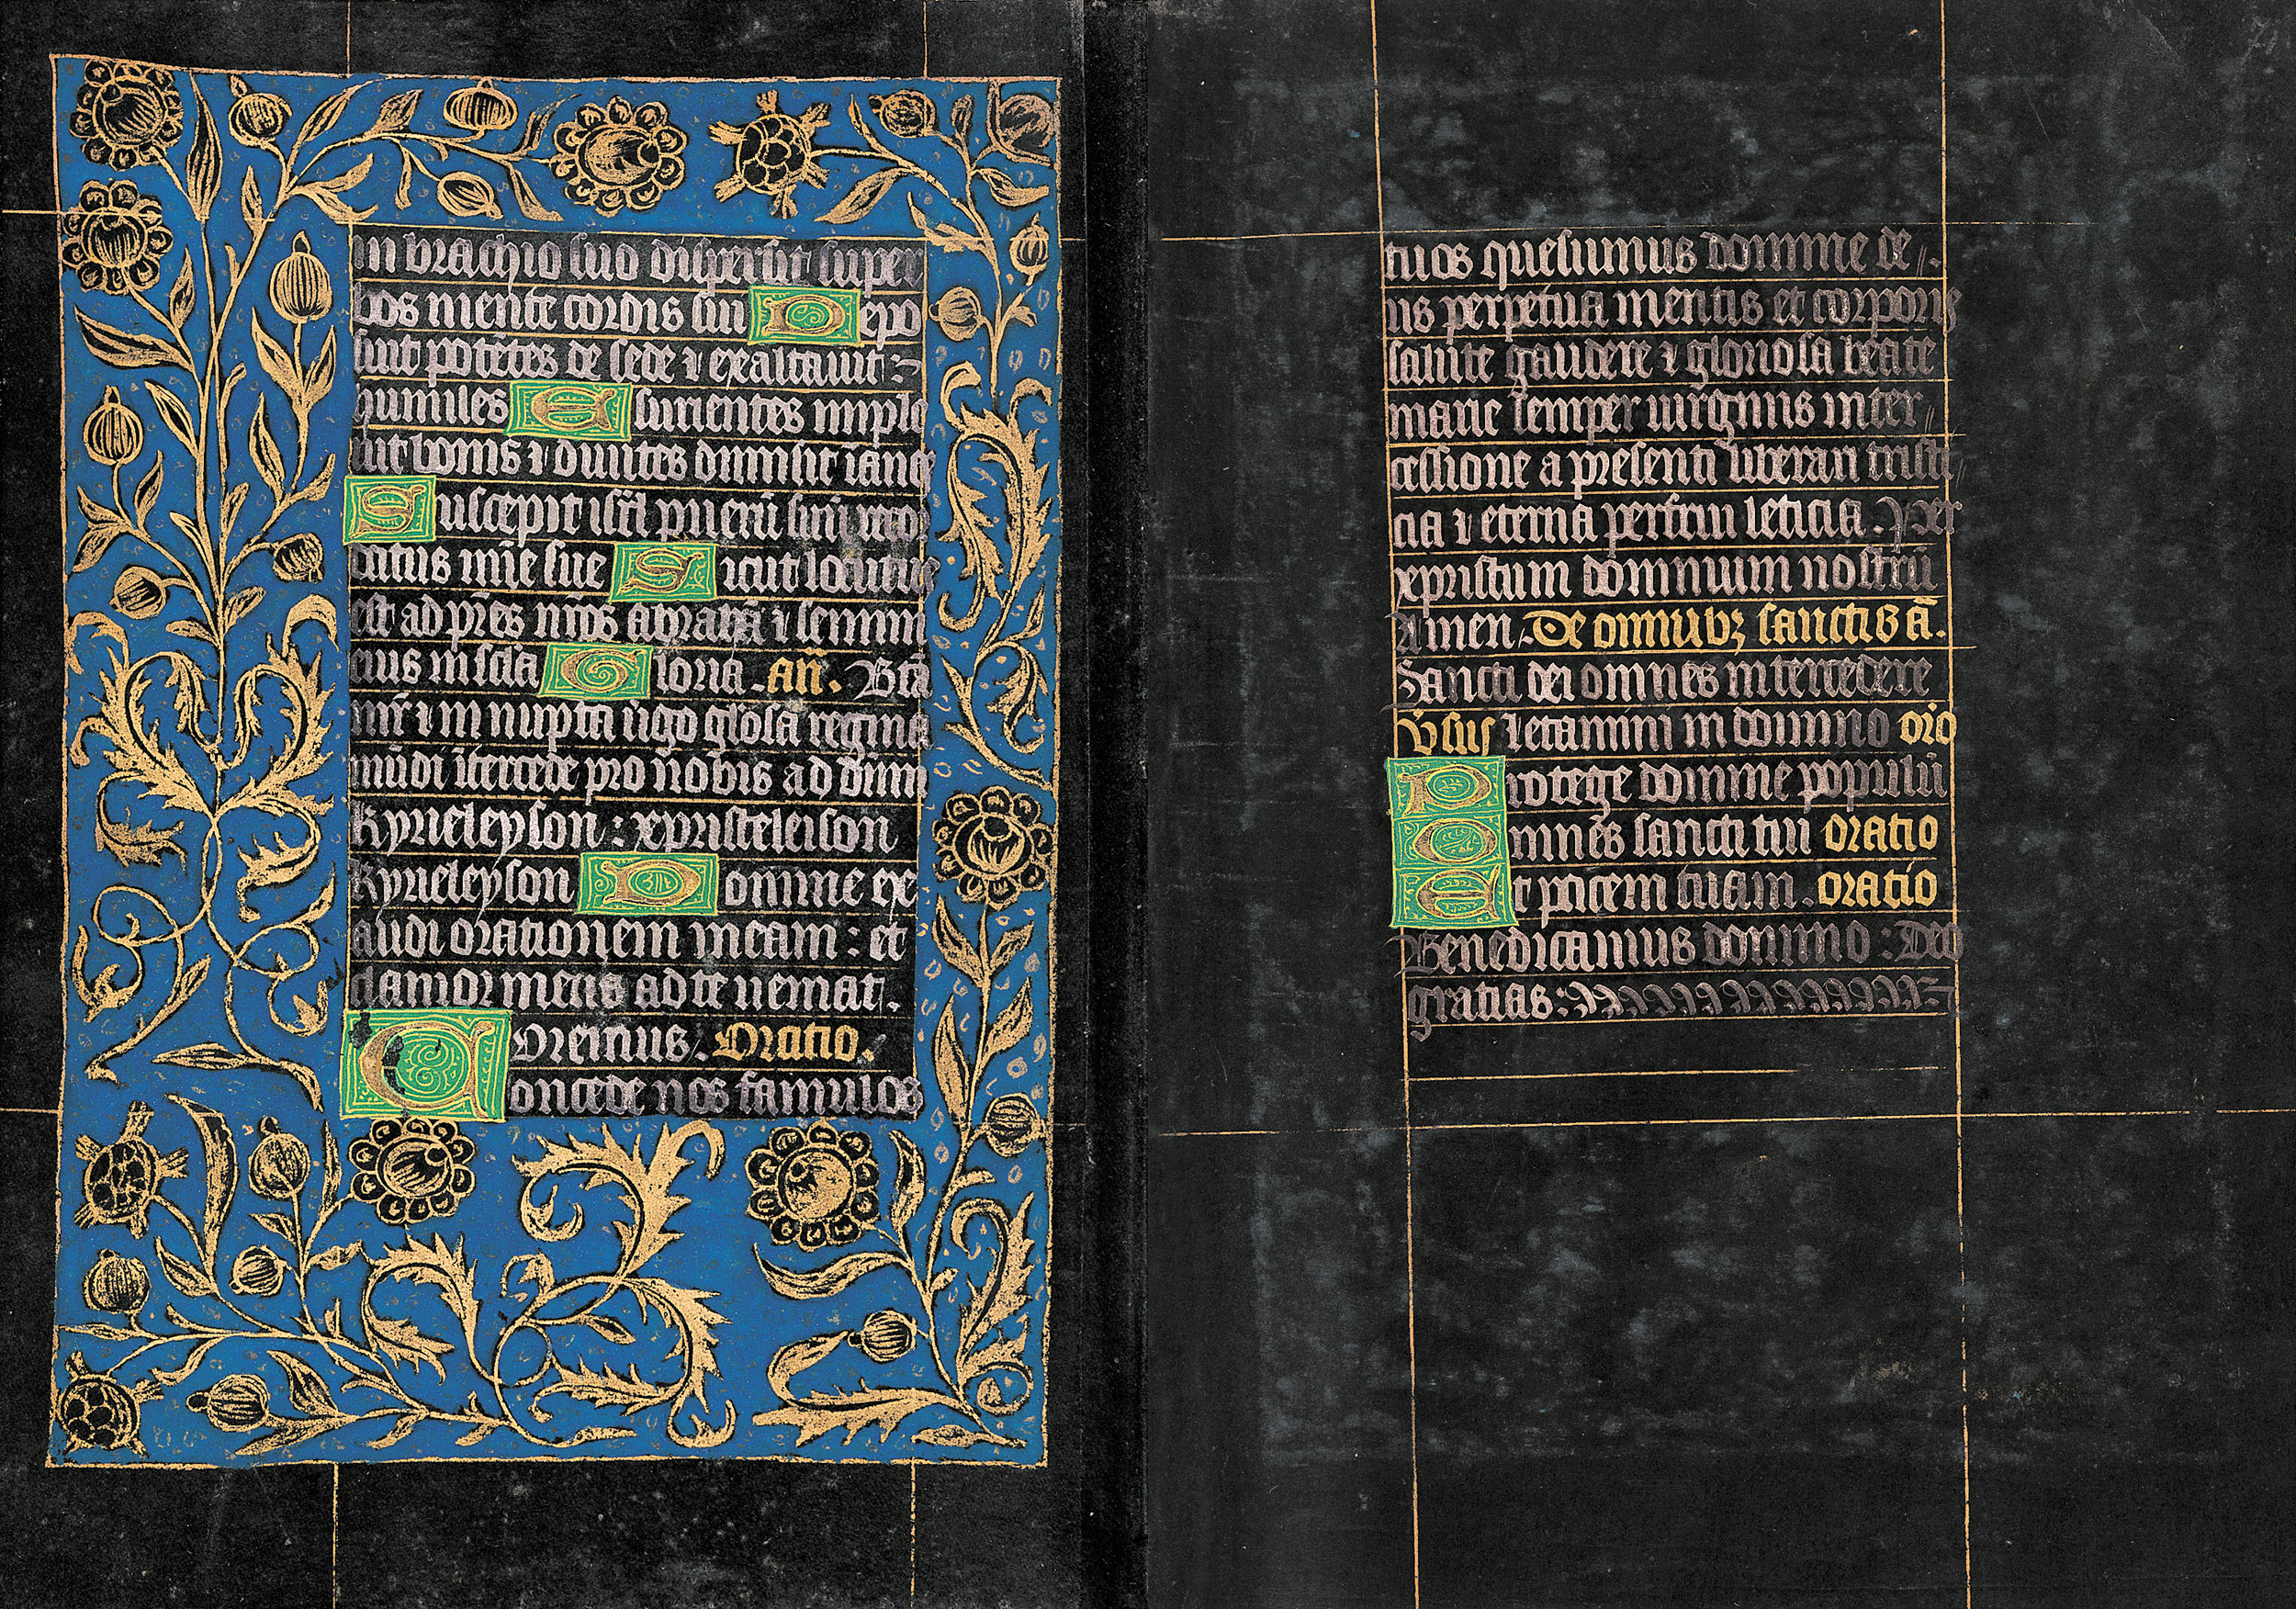 in brachio suo dispersit super
bos mente cordis sui Depo
suit potētes de sede ⁊ exaltauit :
humiles Esurientes imple
uit bonis ⁊ diuites dimisit ināne
Suscepit isrl̄ puerū suū recor
datus mīe sue Sicut locutus
est ad prēs nr̄os abrahā ⁊ semini
eius in scla Gloria . an̄. Btā
mr̄ ⁊ in nupta ūgo glosa regina
mūdi ītercede pro nobis ad dnm
Kyrieleyson : xpristeleison
Kyrieleyson Domine ex
audi orationem meam : et
clamor meus ad te ueniat .
Oremus . Oratio.
Concede nos famulos
tuos quesumus domine de
us perpetua mentis et corporis
salute gaudere ⁊ gloriosa beate
marie semper uirginis inter
cessione a presenti liberari tristi
cia ⁊ eterna perfrui leticia . Per
xpristum dominum nostrū
Amen . De omnibꝫ sanctis ā.
Sancti dei omnes intercedere
Vsus Letamini in domino orō
Protege domine populū
Omnes sancti tui oratio
Et pacem tuam . oratio
Benedicamus domino : Deo
gratias :